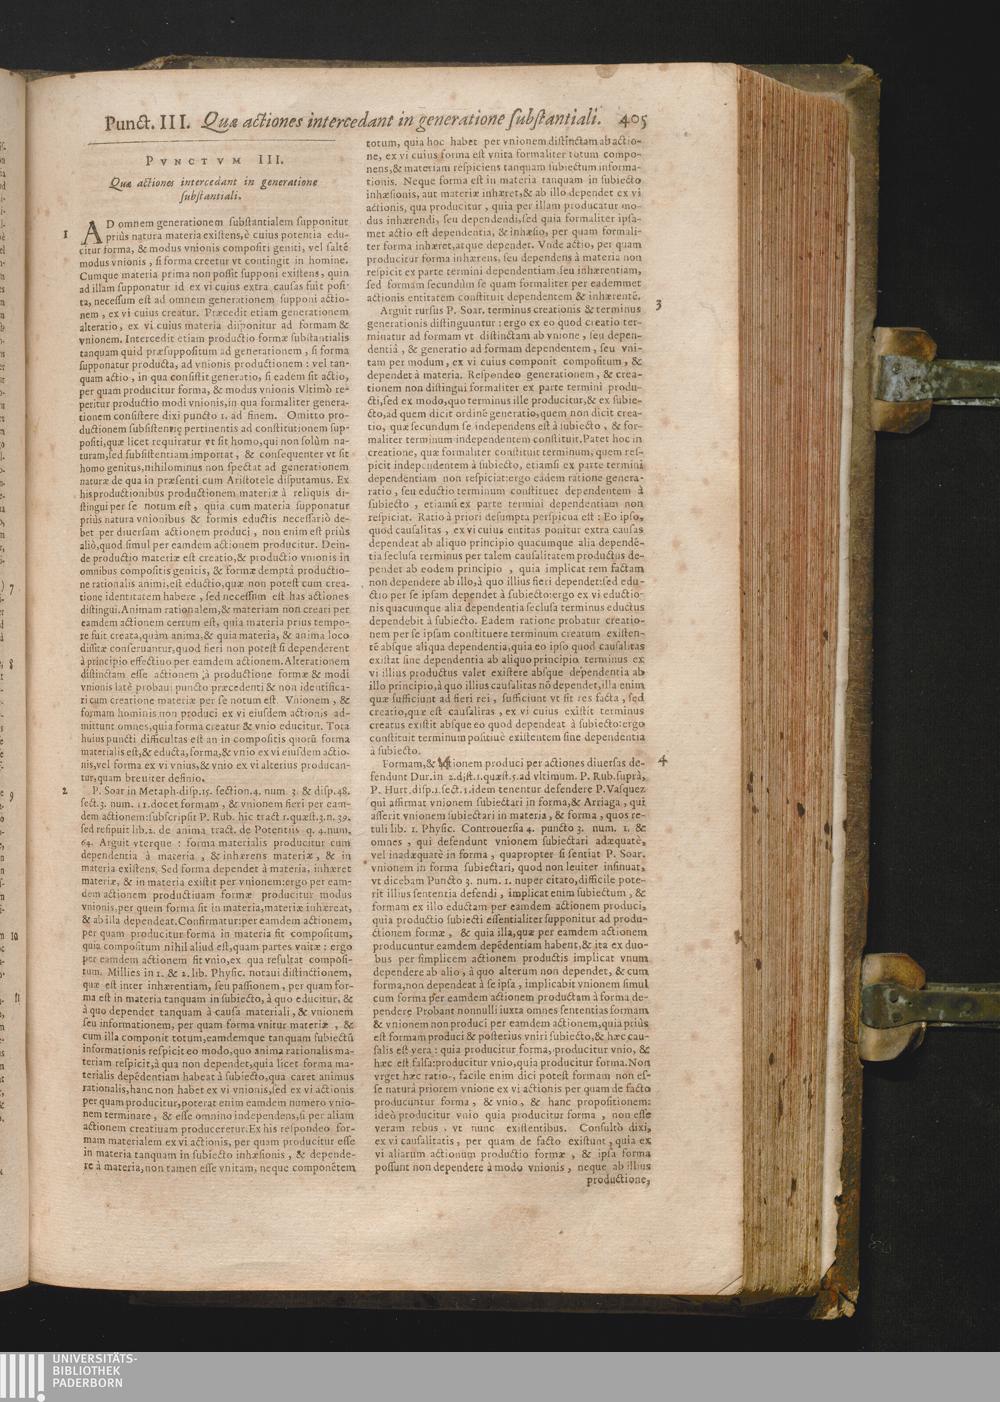 Punct. III. Quæ actiones intercedant in generatione substantiali. 405
PVNCTVM III.
Quæ actiones intercedant in generatione
substantiali.
1
AD omnem generationem substantialem supponitur
priùs natura materia existens, è cuius potentia edu-
citur forma, & modus vnionis compositi geniti, vel saltē
modus vnionis, si forma creetur vt contingit in homine.
Cumque materia prima non possit supponi existens, quin
ad illam supponatur id ex vi cuius extra causas fuit posi-
ta, necessum est ad omnem generationem supponi actio-
nem, ex vi cuius creatur. Præcedit etiam generationem
alteratio, ex vi cuius materia disponitur ad formam &
vnionem. Intercedit etiam productio formæ substantialis
tanquam quid præsuppositum ad generationem, si forma
supponatur producta, ad vnionis productionem: vel tan-
quam actio, in qua consistit generatio, si eadem sit actio,
per quam producitur forma, & modus vnionis Vltimò re-
peritur productio modi vnionis, in qua formaliter genera-
tionem consistere dixi puncto 1. ad finem. Omitto pro-
ductionem subsistentię pertinentis ad constitutionem sup-
positi, quæ licet requiratur vt sit homo, qui non solùm na-
turam, sed subsistentiam importat, & consequenter vt sit
homo genitus, nihilominus non spectat ad generationem
naturæ de qua in præsenti cum Aristotele disputamus. Ex
his productionibus productionem materiæ à reliquis di-
stingui per se notum est, quia cum materia supponatur
priùs natura vnionibus & formis eductis necessariò de-
bet per diuersam actionem produci, non enim est priùs
aliò, quod simul per eamdem actionem producitur. Dein-
de productio materiæ est creatio, & productio vnionis in
omnibus compositis genitis, & formæ demptâ productio-
ne rationalis animi, est eductio, quæ non potest cum crea-
tione identitatem habere, sed necessum est has actiones
distingui. Animam rationalem, & materiam non creari per
eamdem actionem certum est, quia materia prius tempo-
re fuit creata, quàm anima, & quia materia, & anima loco
dissitæ conseruantur, quod fieri non potest si dependerent
à principio effectiuo per eamdem actionem. Alterationem
distinctam esse actionem, à productione formæ & modi
vnionis latè probaui puncto præcedenti & non identifica-
ri cum creatione materiæ per se notum est. Vnionem, &
formam hominis non produci ex vi eiusdem actionis ad-
mittunt omnes, quia forma creatur & vnio educitur. Tota
huius puncti difficultas est an in compositis quorū forma
materialis est, & educta, forma, & vnio ex vi eiusdem actio-
nis, vel forma ex vi vnius, & vnio ex vi alterius producan-
tur, quam breuiter definio.
2
P. Soar in Metaph. disp. 15. section. 4. num. 3. & disp. 48.
sect. 3. num. 11. docet formam, & vnionem fieri per eam-
dem actionem: subscripsit P. Rub. hic tract 1. quæst. 3. n. 39.
sed resipuit lib. 2. de anima tract. de Potentiis q. 4. num.
64. Arguit vterque: forma materialis producitur cum
dependentia à materia, & inhærens materiæ, & in
materia existens. Sed forma dependet à materia, inhæret
materiæ, & in materia existit per vnionem: ergo per eam-
dem actionem productiuam formæ producitur modus
vnionis, per quem forma sit in materia, materiæ inhæreat,
& ab illa dependeat. Confirmatur: per eamdem actionem,
per quam producitur forma in materia fit compositum,
quia compositum nihil aliud est, quam partes vnitæ: ergo
per eamdem actionem fit vnio, ex qua resultat composi-
tum. Millies in 1. & 2. lib. Physic. notaui distinctionem,
quæ est inter inhærentiam, seu passionem, per quam for-
ma est in materia tanquam in subiecto, à quo educitur, &
à quo dependet tanquam à causa materiali, & vnionem
seu informationem, per quam forma vnitur materiæ, &
cum illa componit totum, eamdemque tanquam subiectū
informationis respicit eo modo, quo anima rationalis ma-
teriam respicit, à qua non dependet, quia licet forma ma-
terialis depēdentiam habeat à subiecto, qua caret animus
rationalis, hanc non habet ex vi vnionis, sed ex vi actionis
per quam producitur, poterat enim eamdem numero vnio-
nem terminare, & esse omnino independens, si per aliam
actionem creatiuam produceretur. Ex his respondeo for-
mam materialem ex vi actionis, per quam producitur esse
in materia tanquam in subiecto inhæsionis, & depende-
re à materia, non tamen esse vnitam, neque componētem
totum, quia hoc habet per vnionem distinctam ab actio-
ne, ex vi cuius forma est vnita formaliter totum compo-
nens, & materiam respiciens tanquam subiectum informa-
tionis. Neque forma est in materia tanquam in subiecto
inhæsionis, aut materiæ inhæret, & ab illo dependet ex vi
actionis, qua producitur, quia per illam producatur mo-
dus inhærendi, seu dependendi, sed quia formaliter ipsa-
met actio est dependentia, & inhæsio, per quam formali-
ter forma inhæret, atque dependet. Vnde actio, per quam
producitur forma inhærens, seu dependens à materia non
respicit ex parte termini dependentiam seu inhærentiam,
sed formam secundùm se quam formaliter per eademmet
actionis entitatem constituit dependentem & inhærentē.
3
Arguit rursus P. Soar. terminus creationis & terminus
generationis distinguuntur: ergo ex eo quod creatio ter-
minatur ad formam vt distinctam ab vnione, seu depen-
dentiâ, & generatio ad formam dependentem, seu vni-
tam per modum, ex vi cuius componit compositum, &
dependet à materia. Respondeo generationem, & crea-
tionem non distingui formaliter ex parte termini produ-
cti, sed ex modo, quo terminus ille producitur, & ex subie-
cto, ad quem dicit ordinē generatio, quem non dicit crea-
tio, quæ secundùm se independens est à subiecto, & for-
maliter terminum independentem constituit. Patet hoc in
creatione, quæ formaliter constituit terminum, quem res-
picit independentem à subiecto, etiamsi ex parte termini
dependentiam non respiciat: ergo eâdem ratione genera-
ratio, seu eductio terminum constituet dependentem à
subiecto, etiamsi ex parte termini dependentiam non
respiciat. Ratio à priori desumpta perspicua est: Eo ipso,
quod causalitas, ex vi cuius entitas ponitur extra causas
dependeat ab aliquo principio quacumque alia dependē-
tia seclusa terminus per talem causalitatem productus de-
pendet ab eodem principio, quia implicat rem factam
non dependere ab illo, à quo illius fieri dependet: sed edu-
ctio per se ipsam dependet à subiecto: ergo ex vi eductio-
nis quacumque alia dependentia seclusa terminus eductus
dependebit à subiecto. Eadem ratione probatur creatio-
nem per se ipsam constituere terminum creatum existen-
tē absque aliqua dependentia, quia eo ipso quod causalitas
existat sine dependentia ab aliquo principio terminus ex
vi illius productus valet existere absque dependentia ab
illo principio, à quo illius causalitas nō dependet, illa enim
quæ sufficiunt ad fieri rei, sufficiunt vt sit res facta, sed
creatio, quæ est causalitas, ex vi cuius existit terminus
creatus existit absque eo quod dependeat à subiecto: ergo
constituit terminum positiuè existentem sine dependentia
à subiecto.
4
Formam, & vnionem produci per actiones diuersas de-
fendunt Dur. in 2. dist. 1. quæst. 5. ad vltimum. P. Rub. suprà,
P. Hurt. disp. 1. sect. 1. idem tenentur defendere P. Vasquez
qui affirmat vnionem subiectari in forma, & Arriaga, qui
asserit vnionem subiectari in materia, & forma, quos re-
tuli lib. 1. Physic. Controuersia 4. puncto 3. num. 1. &
omnes, qui defendunt vnionem subiectari adæquatè,
vel inadæquatè in forma, quapropter si sentiat P. Soar.
vnionem in forma subiectari, quod non leuiter insinuat,
vt dicebam Puncto 3. num. 1. nuper citato, difficile pote-
rit illius sententia defendi, implicat enim subiectum, &
formam ex illo eductam per eamdem actionem produci,
quia productio subiecti essentialiter supponitur ad produ-
ctionem formæ, & quia illa, quæ per eamdem actionem
producuntur eamdem depēdentiam habent, & ita ex duo-
bus per simplicem actionem productis implicat vnum
dependere ab alio, à quo alterum non dependet, & cum
forma, non dependeat à se ipsa, implicabit vnionem simul
cum forma per eamdem actionem productam à forma de-
pendere Probant nonnulli iuxta omnes sententias formam
& vnionem non produci per eamdem actionem, quia priùs
est formam produci & posterius vniri subiecto, & hæc cau-
salis est vera: quia producitur forma, producitur vnio, &
hæc est falsa: producitur vnio, quia producitur forma. Non
vrget hæc ratio, facile enim dici potest formam non es-
se naturâ priorem vnione ex vi actionis per quam de facto
producuntur forma, & vnio, & hanc propositionem:
ideò producitur vnio quia producitur forma, non esse
veram rebus, vt nunc existentibus. Consultò dixi,
ex vi causalitatis, per quam de facto existunt, quia ex
vi aliarum actionum productio formæ, & ipsa forma
possunt non dependere à modo vnionis, neque ab illius
productione,
UNIVERSITÄTS-
BIBLIOTHEK
PADERBORN